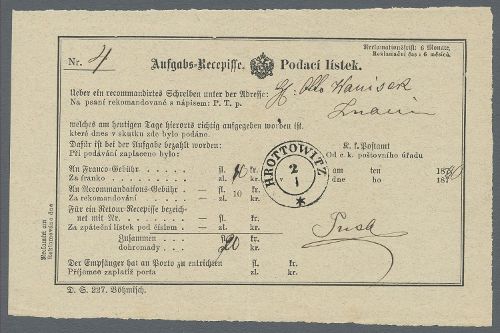 Reklamationsfrist 6 Monate.
Reklamační čas 6 měsíců.
Nr. 4 Aufgabs-Recepisse. Podací lístek.
Ueber ein recommandirtes Schreiben unter der Adresse: H. Otto Hanisek
Na psaní rekomandované s nápisem: P. T. p. Znaim
welches am heutigen Tage hierorts richtig aufgegeben worden ist.
které dnes v skutku zde bylo podáno.
Dafür ist bei der Aufgabe bezahlt worden:
Při podávání zaplaceno bylo:
K. k. Postamt
Od c. k. poštovního úřadu
An Franco-Gebühr fl. 10 kr.
Za franko zl. kr.
am ten 1880
dne ho 187
An Recommandations-Gebühr fl. 10 kr.
Za rekomandování zl. kr.
Für ein Retour-Recepisse bezeichnet mit Nr. fl. kr.
Za zpáteční lístek pod číslem zl. kr.
Zusammen fl. 20 kr.
dohromady zl. kr.
Der Empfänger hat an Porto zu entrichten fl. kr.
Příjemce zaplatiž porta zl. kr.
HROTTOWITZ
2
1
Reclamirt am
Reklamováno dne
D. S. 227. Böhmisch.